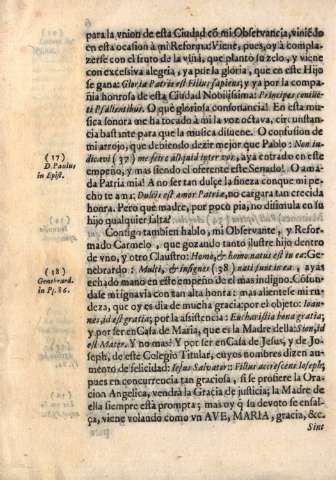 para la vnion de esta Ciudad cō mi Observancia, viniēdo
en esta ocasion à mi Reforma: Viene, pues, oy à compla-
zerse con el fruto de la vina, que plantò su zelo, y viene
con excessiva alegria, ya por la gloria, que en este Hijo
se gana: Gloria Patris est Filius sapiens; y ya por la compa-
ñia honrosa de esta Ciudad Nobilissima: Principes coniũc-
ti Psallentibus. O què gloriosa consonancia! En esta mu-
sica sonora me ha tocado à mi la voz octava, circunstan-
cia bastante para que la musica disuene. O confusion de
mi arrojo, que debiendo dezir mejor que Pablo: Non iu-
dicavi (37) me scire aliquid inter vos, aya entrado en este
empeño, y mas siendo el oferente este Senado! O ama-
da Patria mia! A no ser tan dulçe la fineza conque mi pe-
cho te ama: Dulcis est amor Patriæ, no cargàra tan crecida
honra. Pero què madre, por poco pia, no disimula en su
hijo qualquier falta?
(37)
D. Paulus
in Epist.
Contigo tambien hablo, mi Observante, y Refor-
mado Carmelo, que gozando tanto ilustre hijo dentro
de vno, y otro Claustro: Homò, & homo natus est in ea: Ge-
nebrardo: Multi, & insignes (38) nati sunt in ea, ayas
echado mano en este empeño de el mas indigno. Cōfun-
dale mi ignavia con tan alta honra: mas alientese mi ru-
deza, que oy es dia de mucha gracia: por el objeto: Ioan-
nes, id est gratia; por la assistencia: Eucharistia bona gratia;
y por ser en Casa de Maria, que es la Madre della: Sint, id
est Mater. Y no mas? Y por ser en Casa de Jesus, y de Jo-
seph, de este Colegio Titular, cuyos nombres dizen au-
mento de felicidad: Iesus Salvator: Filius accrescens Ioseph;
pues en concurrencia tan graciosa, si se profiere la Ora-
cion Angelica, vendrà la Gracia de justicia; la Madre de
ella siempre està prompta; mas oy q̃ su devoto se ensal-
ça, viene volando como vn AVE, MARIA, gracia, &c.
(38)
Genebrard.
in Ps. 86.
Sint